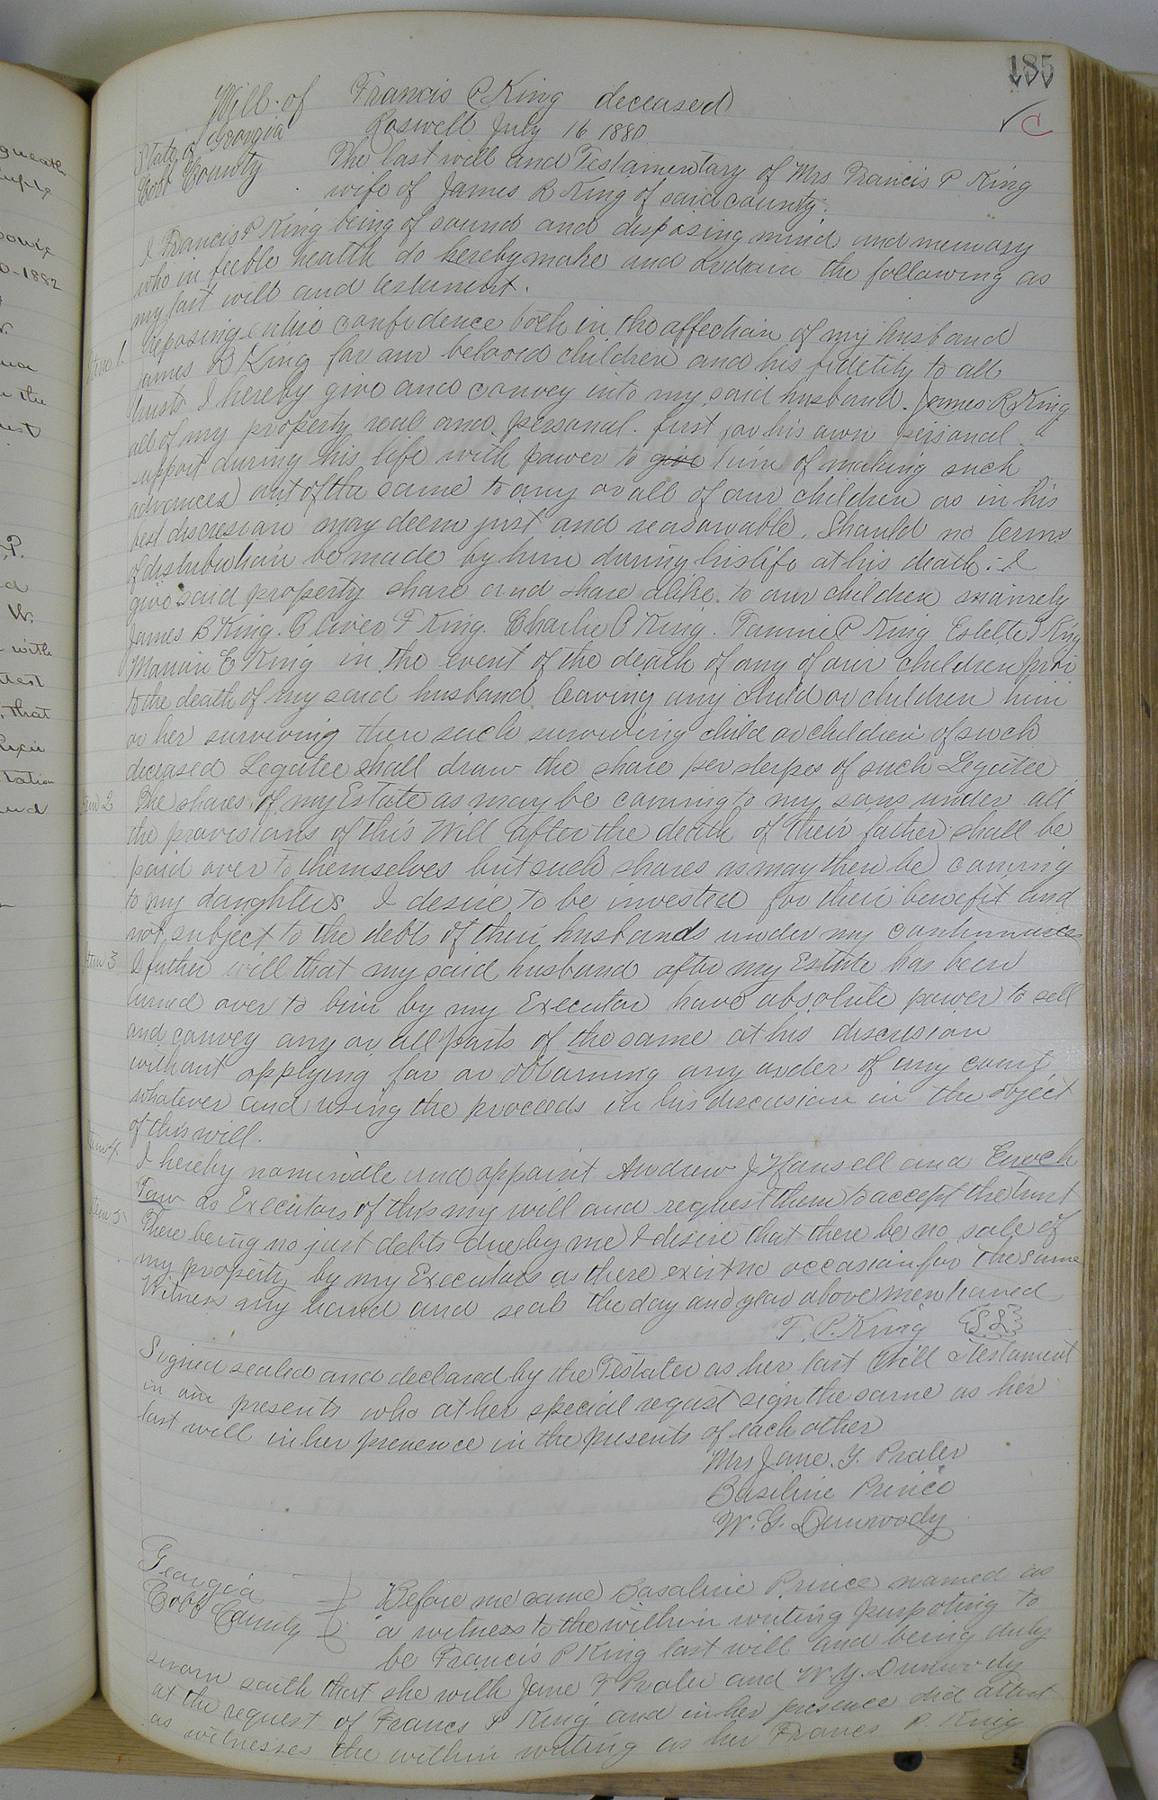 185
C
Will of Francis P King deceased
Roswell July 16 1880
State of Georgia
Cobb County
The last will and Testamentary of Mrs Francis P King
wife of James R King of said county.
I Francis P King being of sound and disposing mind and memory
who in feeble health do hereby make and ordain the following as
my last will and testament.
Item 1. Reposing entire confidence both in the affection of my husband
James R King for our beloved children and his fidelity to all
trusts I hereby give and convey into my said husband James R King
all of my property real and personal. first for his own personal
support during his life with power to give him of making such
advances out of the same to any or all of our children as in his
best discresion may deem just and reasonable. Should no terms
of distribution be made by him during his life at his death. I
give said property share and share alike to our children namely
James B King. Oliver P King. Charlie C King. Fannie P King Estelle King
Marian E King in the event of the death of any of our children prior
to the death of my said husband leaving any child or children him
or her surviving then such surviving child or children of such
deceased Legatee shall draw the share per sterpes of such Legatee
Item 2 The shares of my Estate as may be coming to my sons under all
the provisions of this Will after the death of their father shall be
paid over to themselves but such shares as may then be coming
to my daughters I desire to be invested for their benefit and
not subject to the debts of their husbands under my
Item 3 I futher will that my said husband after my Estate has been
turned over to him by my Executor have absolute power to sell
and convey any or all parts of the same at his discresion
without applying for or obtaining any order of any court
whatever and using the proceeds in his discresion in the object
of this will.
Item 4. I hereby nominate and appoint Andrew J Hansell and Enoch
Faw as Executors of this my will and request them to accept the trust
Item 5 There being no just debts due by me I desire that there be no sale of
my property by my Executors as there exist no occasion for the same
Witness my hand and seal the day and year above mentioned
F. P. King {LS}
Signed sealed and declared by the Testater as her last Will & testament
in our presents who at her special reqest sign the same as her
last will in her presence in the presents of each other
Mrs Jane. Y. Prater
Basiline Prince
W. G. Dunwody
Georgia
Cobb County
Before me came Basaline Prince named as
a witness to the within writing purpoting to
be Francis P King last will and being duly
sworn saith that she with Jane Y Prater and W. G. Dunwody
at the request of Francs P King and in her presence did attest
as witnesses the within writing as her Francs P. King